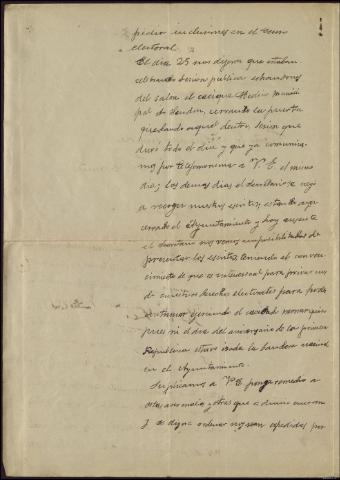 pedir inclusiones en el censo
electoral.
El dia 25 nos dejaron que estaban
celebrando sesion publica echandonos
del salon el cacique Medico munici
pal de Sendin, cerrando la puerta
quedando aquel dentro, sesion que
duró todo el dia y que ya comunica
mos por telefonema a V. E. el mismo
dia; los demas dias el secretario se negó
a recoger nuestros escritos, estando ayer
cerrado el Ayuntamiento y hoy ausente
el secretario nos vemos imposibilitados de
presentar los escritos teniendo el conven
cimiento de que es intencional para privar nos
de nuestros derechos electorales para poder
continuar ejerciendo el caciquismo
pues ni el dia del aniversario de la primera
Republica estuvo izada la bandera nacional
en el Ayuntamiento.
Suplicamos a V. E. ponga remedio a
estas anomalias y otras que a diario
y se digne ordenar nos sean expedidas por